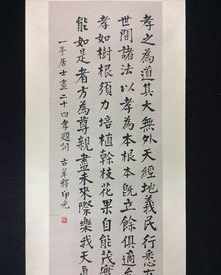 孝之為道其大無外天經地義民行悉
世間諸法以孝為本根本既立餘俱適
孝如樹根須力培植幹枝花果自能茂
能如是者方為尊親盡未來際樂我天真
一亭居士畫二十四孝題詞 古莘釋印光